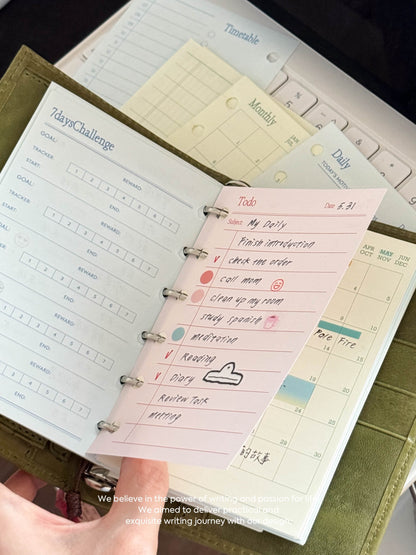 Timetable
Monthly
Daily
TODAY'S MOT
7daysChallenge
GOAL:
TRACKER: 1 2 3 4 5 6 7
REWARD:
START:
END:
GOAL:
TRACKER: 1 2 3 4 5 6 7
REWARD:
START:
END:
GOAL:
TRACKER: 1 2 3 4 5 6 7
REWARD:
START:
END:
REWARD:
1 2 3 4 5 6 7
END:
REWARD:
END:
Todo
Date 5.31
Subject: My Daily
Finish introduction
✓ check the order
call mom
clean up my room
study spanish
meditation
✓ Reading
✓ Diary
Review Talk
Metting
APR MAY JUN
OCT NOV DEC
Pole Fire
的故事
We believe in the power of writing and passion for life.
We aimed to deliver practical and
exquisite writing journey with our design.